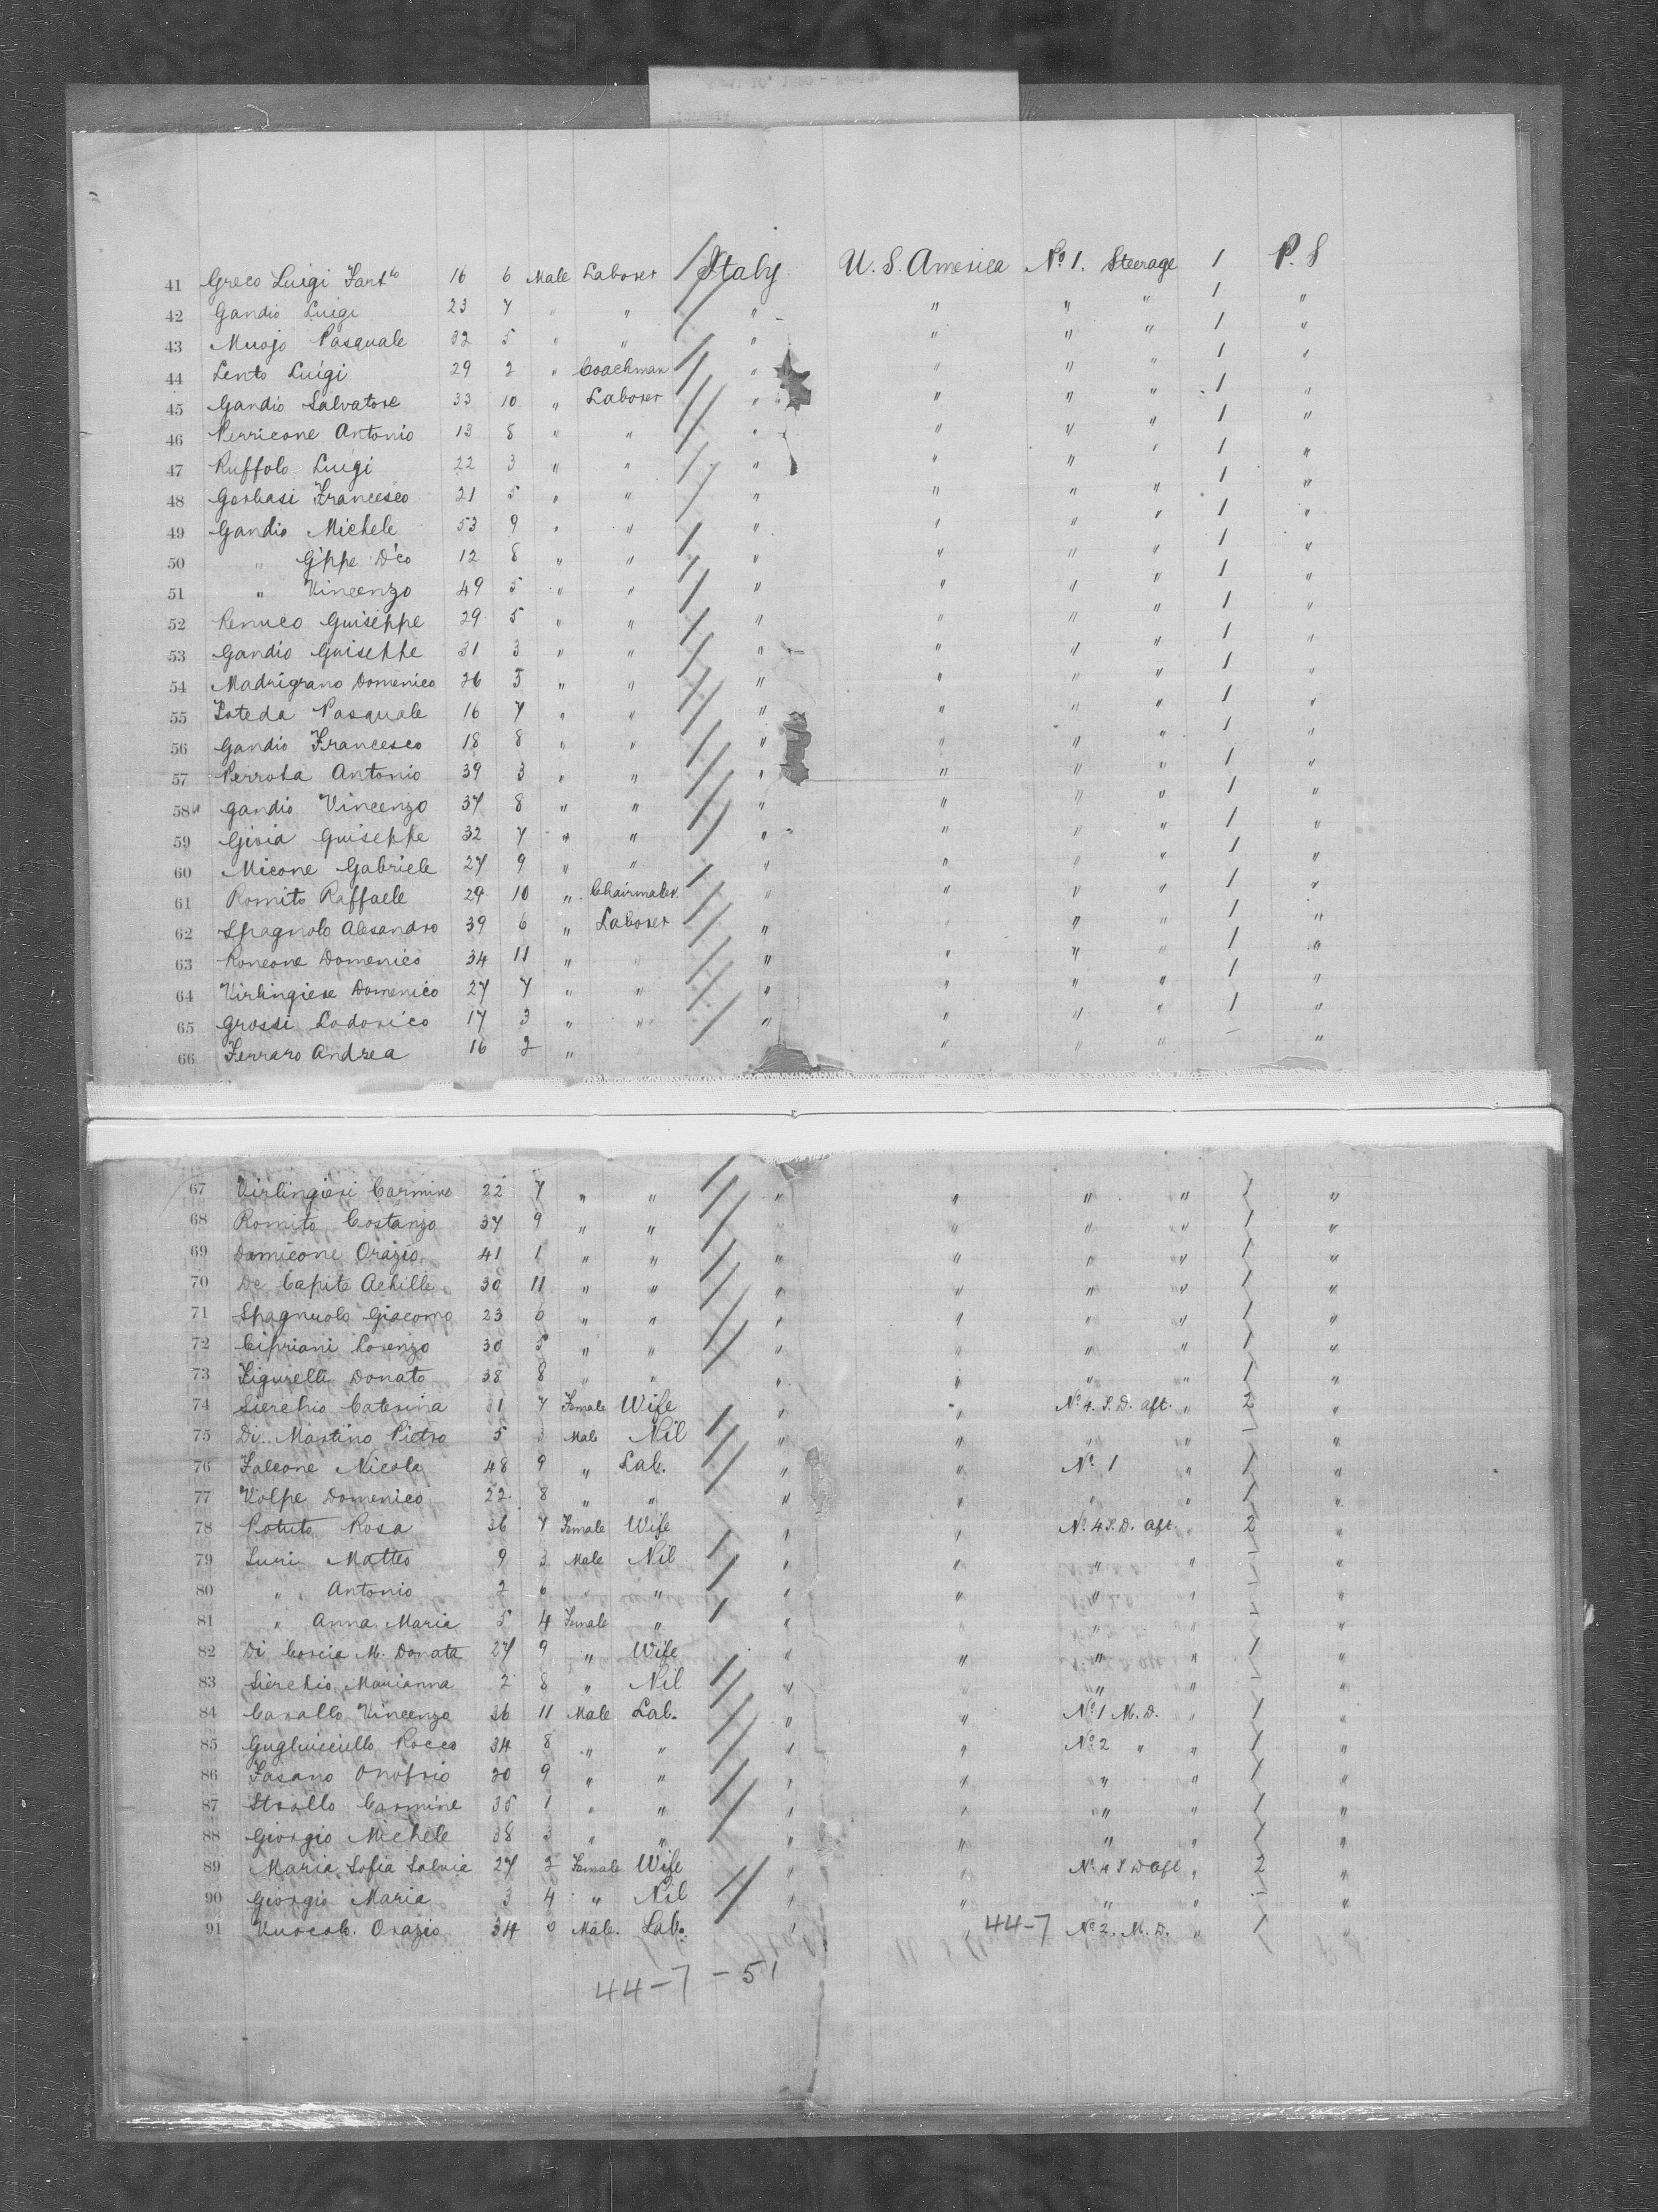 41 Greco Luigi Fort.to 16 6 Male Laborer Italy U. S. America No 1. Steerage 1 P. S
42 Gandio Luigi 23 7 " " " " " " 1 "
43 Muojo Pasquale 32 5 " " " " " " 1 "
44 Lento Luigi 29 2 " Coachman " " " " 1 "
45 Gandio Salvatore 33 10 " Laborer " " " " 1 "
46 Perricone Antonio 13 8 " " " " " " 1 "
47 Ruffolo Luigi 22 3 " " " " " " 1 "
48 Gerbasi Francesco 21 5 " " " " " " 1 "
49 Gandio Michele 53 9 " " " " " " 1 "
50 " G'ppe D'co 12 8 " " " " " " 1 "
51 " Vincenzo 49 5 " " " " " " 1 "
52 Penuco Guiseppe 29 5 " " " " " " 1 "
53 Gandio Guiseppe 31 3 " " " " " " 1 "
54 Madrigrano Domenico 26 5 " " " " " " 1 "
55 Loteda Pasquale 16 7 " " " " " " 1 "
56 Gandio Francesco 18 8 " " " " " " 1 "
57 Perrota Antonio 39 3 " " " " " " 1 "
58 Gandio Vincenzo 37 8 " " " " " " 1 "
59 Gioia Guiseppe 32 7 " " " " " " 1 "
60 Micone Gabriele 27 9 " " " " " " 1 "
61 Romito Raffaele 29 10 " Chairmaker " " " " 1 "
62 Spagnolo Alesandro 39 6 " Laborer " " " " 1 "
63 Roncone Domenico 34 11 " " " " " " 1 "
64 Virlingiere Domenico 27 7 " " " " " " 1 "
65 Grossi Lodovico 17 3 " " " " " " 1 "
66 Ferraro Andrea 16 2 " " " " "
67 Virlingieri Carmine 22 7 " " " " " " 1 "
68 Romito Costanzo 37 9 " " " " " " 1 "
69 Damicone Orazio 41 1 " " " " " " 1 "
70 De Capite Achille 30 11 " " " " " " 1 "
71 Spagnuolo Giacomo 23 6 " " " " " " 1 "
72 Cipriani Lorenzo 30 5 " " " " " " 1 "
73 Figurelli Donato 38 8 " " " " " " 1 "
74 Sierchio Caterina 31 7 Female Wife " " No 4. S. D. aft. " 2 "
75 Di Martino Pietro 5 3 Male Nil " " " " "
76 Falcone Nicola 48 9 " Lab. " " No 1 " 1 "
77 Volpe Domenico 22 8 " " " " " " 1 "
78 Potuto Rosa 36 7 Female Wife " " No 4 S. D. aft. " 2 "
79 Luri Matteo 9 3 Male Nil " " " " "
80 " Antonio 2 6 " " " " " " "
81 " Anna Maria 5 4 Female " " " " " "
82 Di Coscia M. Donata 27 9 " Wife " " " " 1 "
83 Sierchio Marianna 2 8 " Nil " " " " "
84 Cavallo Vincenzo 36 11 Male Lab. " " No 1 M. D. " 1 "
85 Gugliucciello Rocco 34 8 " " " " No 2 " " 1 "
86 Fasano Onofrio 30 9 " " " " " " 1 "
87 Strollo Carmine 35 1 " " " " " " 1 "
88 Giorgio Michele 38 3 " " " " " " 1 "
89 Maria Sofia Salvia 27 2 Female Wife " " No 4 S D aft " 2 "
90 Giorgio Maria 3 4 " Nil " " " " "
91 Vuocolo Orazio 34 0 Male. Lab. " " 44-7 No 2. M. D. " 1 "
44-7-51